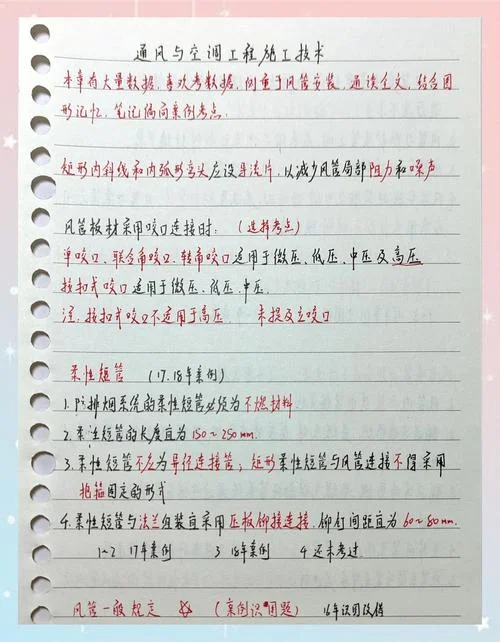 通风与空调工程施工技术
本章有大量数据,喜欢考数据,侧重于风管安装,通读全文,结合图
形记忆,笔记偏向案例考点.
矩形内斜线和内弧形弯头应设导流片,以减少风管局部阻力和噪声
风管板材采用咬口连接时:(选择考点)
单咬口、联合角咬口、转角咬口适用于微压、低压、中压及高压
按扣式咬口适用于微压、低压、中压.
注:按扣式咬口不适用于高压, 未提及立咬口
柔性短管 (17.18年案例)
1.防排烟系统的柔性短管必须为不燃材料
2.柔性短管的长度宜为150~250mm.
3.柔性短管不应为异径连接管;矩形柔性短管与风管连接不得采用
抱箍固定的形式
4.柔性短管与法兰组装宜采用压板铆接连接,铆钉间距宜为60~80mm.
1~2 17年案例 3 18年案例 4 还未考过
风管一般规定 ☆ (案例识图题) 16年识图改错